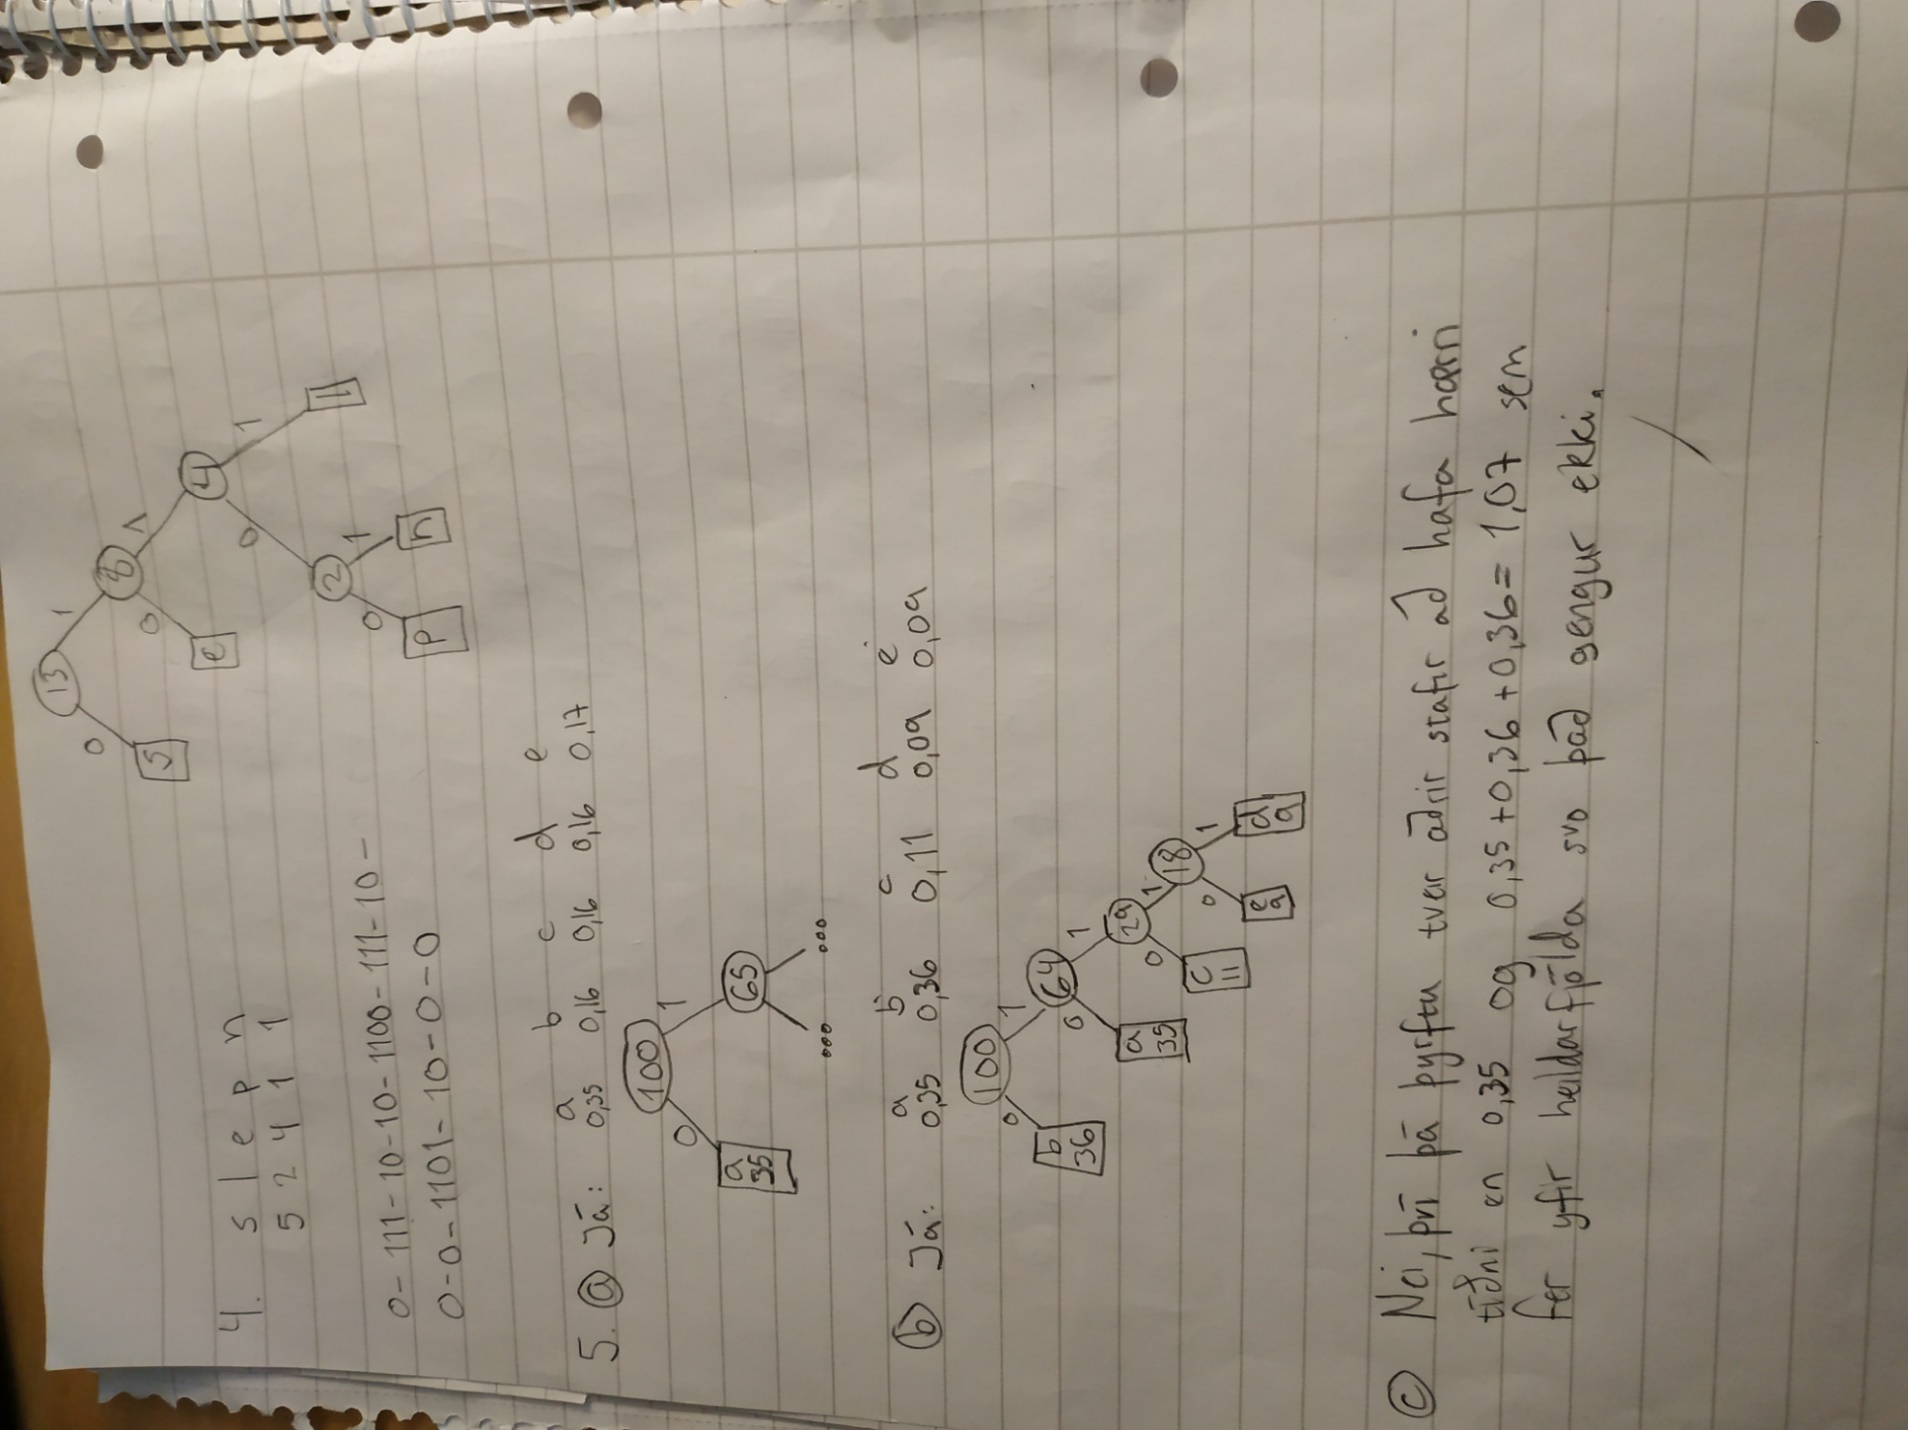 4. s l e p n
5 2 4 1 1
13
0 1
s 8
0 1
e 4
0 1
2 l
0 1
p n
0-111-10-10-1100-111-10-
0-0-1101-10-0-0
5. a Já: a b c d e
0,35 0,16 0,16 0,16 0,17
100
0 1
a 35 65
... ...
b Já: a b c d e
0,35 0,36 0,11 0,09 0,09
100
0 1
b 36 64
0 1
a 35 29
0 1
c 11 18
0 1
e 9 d 9
c Nei, því þá þyrftu tveir aðrir stafir að hafa hærri
tíðni en 0,35 og 0,35+0,36+0,36=1,07 sem
fer yfir heildarfjölda svo það gengur ekki.